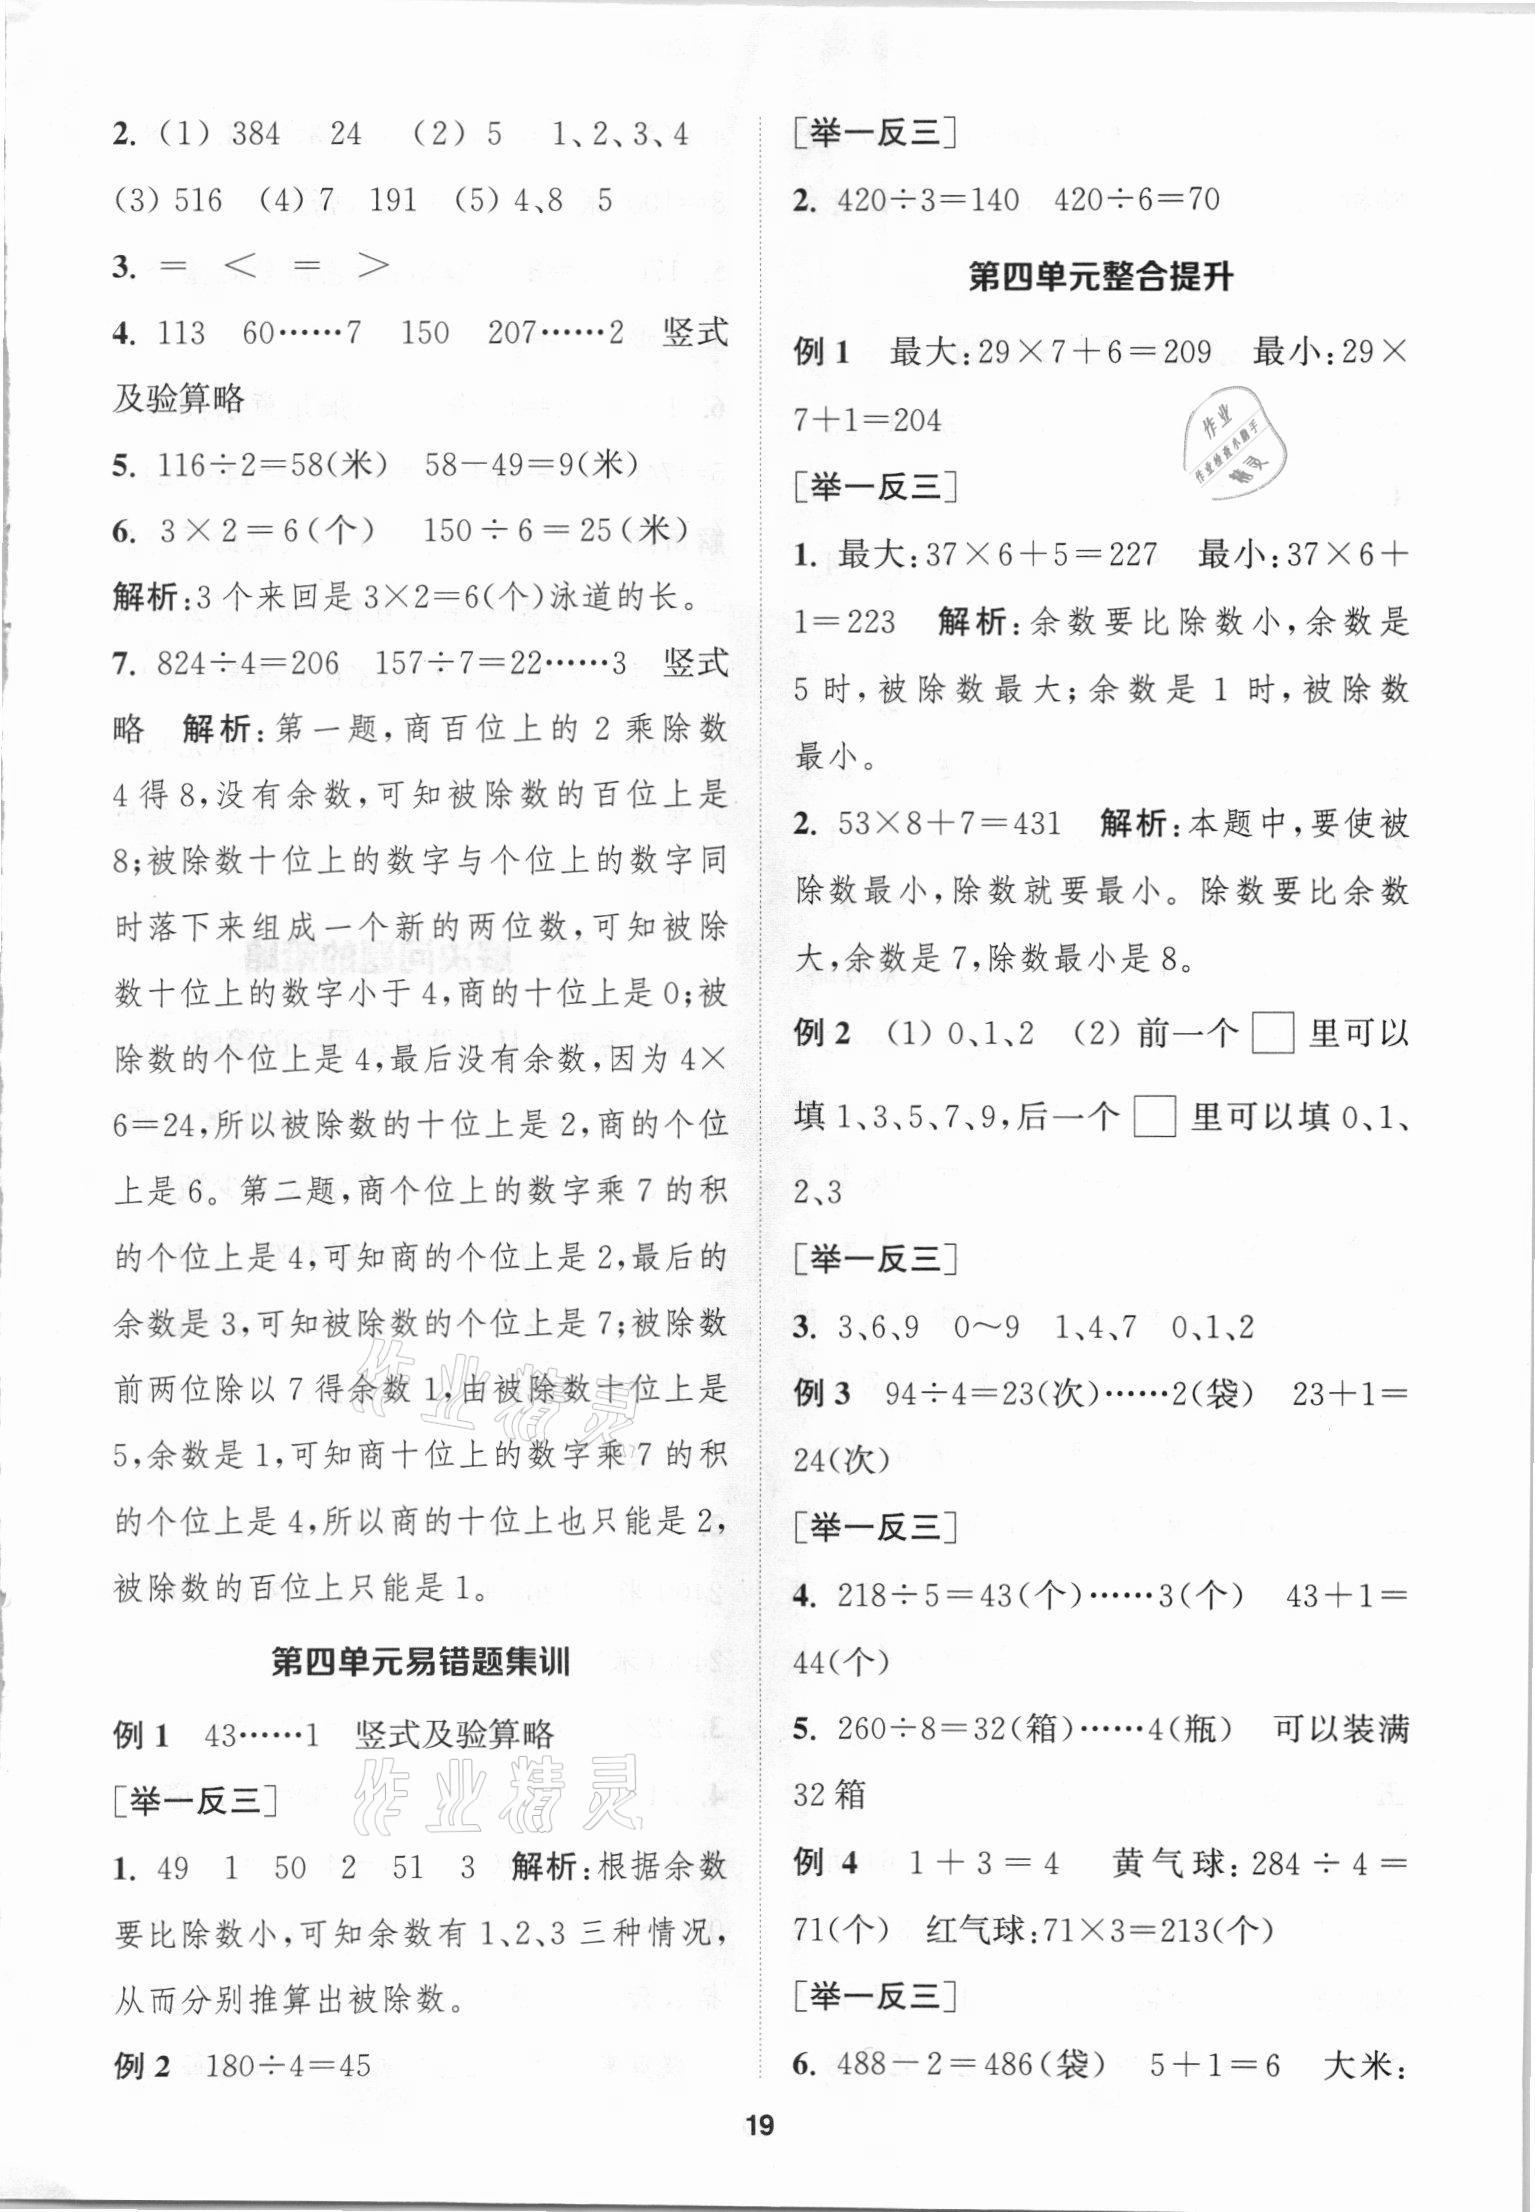 2. (1) 384 24 (2) 5 1、2、3、4
(3) 516 (4) 7 191 (5) 4、8 5
3. = < = >
4. 113 60……7 150 207……2 竖式
及验算略
5. 116÷2=58(米) 58-49=9(米)
6. 3×2=6(个) 150÷6=25(米)
解析:3个来回是3×2=6(个)泳道的长。
7. 824÷4=206 157÷7=22……3 竖式
略 解析:第一题,商百位上的2乘除数
4得8,没有余数,可知被除数的百位上是
8;被除数十位上的数字与个位上的数字同
时落下来组成一个新的两位数,可知被除
数十位上的数字小于4,商的十位上是0;被
除数的个位上是4,最后没有余数,因为4×
6=24,所以被除数的十位上是2,商的个位
上是6。第二题,商个位上的数字乘7的积
的个位上是4,可知商的个位上是2,最后的
余数是3,可知被除数的个位上是7;被除数
前两位除以7得余数1,由被除数十位上是
5,余数是1,可知商十位上的数字乘7的积
的个位上是4,所以商的十位上也只能是2,
被除数的百位上只能是1。
第四单元易错题集训
例1 43……1 竖式及验算略
[举一反三]
1. 49 1 50 2 51 3 解析:根据余数
要比除数小,可知余数有1、2、3三种情况,
从而分别推算出被除数。
例2 180÷4=45
[举一反三]
2. 420÷3=140 420÷6=70
第四单元整合提升
例1 最大:29×7+6=209 最小:29×
7+1=204
[举一反三]
1. 最大:37×6+5=227 最小:37×6+
1=223 解析:余数要比除数小,余数是
5时,被除数最大;余数是1时,被除数
最小。
2. 53×8+7=431 解析:本题中,要使被
除数最小,除数就要最小。除数要比余数
大,余数是7,除数最小是8。
例2 (1) 0、1、2 (2) 前一个□里可以
填1、3、5、7、9,后一个□里可以填0、1、
2、3
[举一反三]
3. 3、6、9 0～9 1、4、7 0、1、2
例3 94÷4=23(次)……2(袋) 23+1=
24(次)
[举一反三]
4. 218÷5=43(个)……3(个) 43+1=
44(个)
5. 260÷8=32(箱)……4(瓶) 可以装满
32箱
例4 1+3=4 黄气球:284÷4=
71(个) 红气球:71×3=213(个)
[举一反三]
6. 488-2=486(袋) 5+1=6 大米:
19
作业
作业检查小助手
精灵
作业精灵
作业精灵